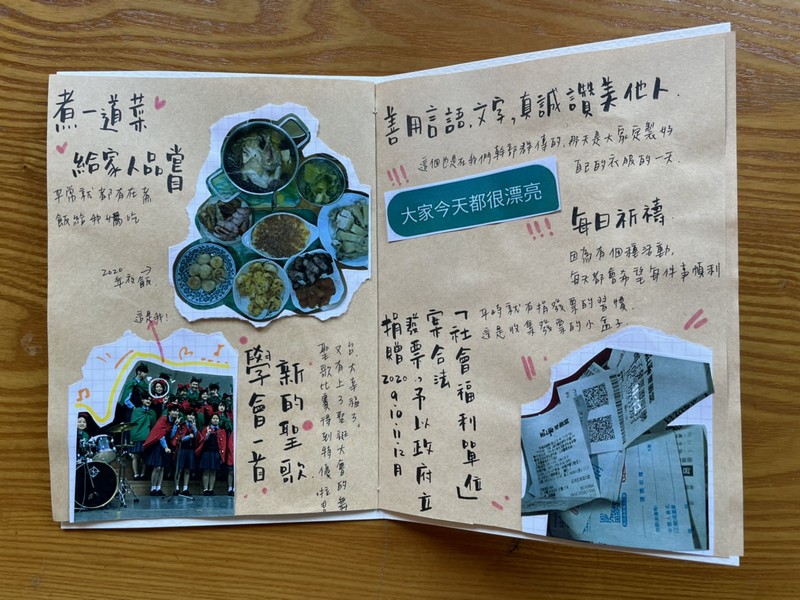 煮一道菜
給家人品嘗
平常就都有在煮
飯給我媽吃
2020
年夜飯
這是我!
學會一首
新的聖歌
聖歌比賽得到特優啦
又有上了聖誕大會的舞
台,太幸福了。
善用言語、文字,真誠讚美他人.
這個也是在我們幹部群傳的,那天是大家定製好
配的衣服的一天.
!!!
大家今天都很漂亮
!!!
每日祈禱.
因為有個禱活動,
每天都會希望每件事順利
平時就有捐發票的習慣.
這是收集發票的小盒子
捐贈2020 9.10.11.12月
發票,予以政府立
案合法
「社會福利單位」